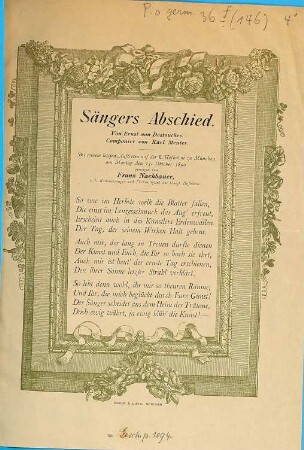 P.o germ. 36 f (146) 4°
Sängers Abschied.
Von Ernst von Destouches.
Componirt von Karl Bender.
bei seinem letzten Auftreten auf der k. Hofbühne zu München
am Montag den 13. Oktober 1890
gesungen von
Franz Nachbaur,
So wie im Herbste welk die Blätter fallen,
Die einst im Lenzesschmuck das Aug' erfreut,
Erscheint auch in des Künstlers Erdenwallen
Der Tag, der seinem Wirken Halt gebeut.
Auch mir, der lang in Treuen durfte dienen
Der Kunst und Euch, die Ihr so hoch sie ehrt,
Auch mir ist heut' der ernste Tag erschienen,
Den Ihrer Sonne letzter Strahl verklärt.
So lebt denn wohl, ihr mir so theuren Räume,
Und Ihr, die mich beglückt durch Eure Gunst!
Der Sänger scheidet aus dem Heim der Träume,
Doch ewig währet, ja ewig blüh' die Kunst! —